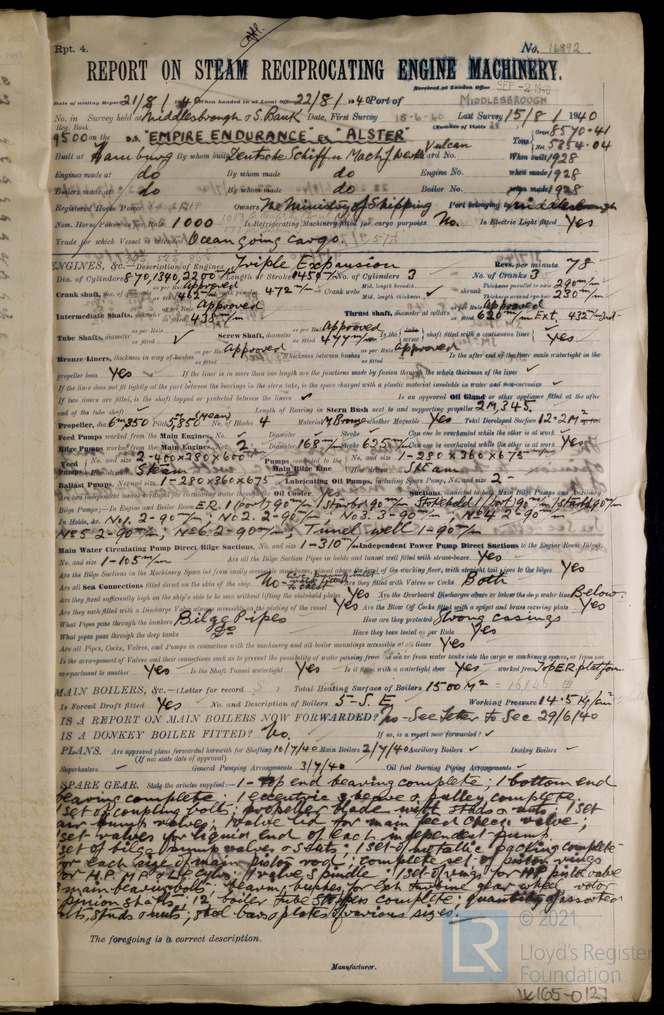 Rpt. 4.
No. 16892
REPORT ON STEAM RECIPROCATING ENGINE MACHINERY.
Received at London Office SEP -2 1940
Date of writing Report 21/8/1940 When handed in at Local Office 22/8/1940 Port of MIDDLESBROUGH
No. in Survey held at Middlesbrough & S. Bank Date, First Survey 15-6-40 Last Survey 15/8/1940
Reg. Book. (Number of Visits
on the S.S. "EMPIRE ENDURANCE" ex "ALSTER" Tons Gross 8570.41 Net 5854.04
Built at Hamburg By whom built Deutsche Schiff u Mach f Werk Vulcan Yard No. When built 1928
Engines made at do By whom made do Engine No. when made 1928
Boilers made at do By whom made do Boiler No. when made 1928
Registered Horse Power Owners The Ministry of Shipping Port belonging to Middlesbrough
Nom. Horse Power as per Rule 1000 Is Refrigerating Machinery fitted for cargo purposes No. Is Electric Light fitted Yes
Trade for which Vessel is intended Ocean going cargo.
ENGINES, &c.—Description of Engines Triple Expansion Revs. per minute 78
Dia. of Cylinders 870, 1390, 2200 m/m Length of Stroke 1450 m/m No. of Cylinders 3 No. of Cranks 3
Crank shaft, dia. of journals as per Rule Approved as fitted 472 m/m Crank webs Mid. length breadth Mid. length thickness ✓ shrunk Thickness parallel to axis 290 m/m Thickness around eye-hole 230 m/m
Intermediate Shafts, diameter as per Rule Approved as fitted 435 m/m Thrust shaft, diameter at collars as per Rule Approved as fitted 620 m/m Ext, 432 m/m Int
Tube Shafts, diameter as per Rule as fitted ✓ Screw Shaft, diameter as per Rule Approved as fitted 477 m/m Is the shaft fitted with a continuous liner Yes
Bronze Liners, thickness in way of bushes as per Rule Approved as fitted Thickness between bushes as per Rule Approved as fitted Is the after end of the liner made watertight in the
propeller boss Yes ✓ If the liner is in more than one length are the junctions made by fusion through the whole thickness of the liner ✓
If the liner does not fit tightly at the part between the bearings in the stern tube, is the space charged with a plastic material insoluble in water and non-corrosive ✓
If two liners are fitted, is the shaft lapped or protected between the liners ✓ Is an approved Oil Gland or other appliance fitted at the after
end of the tube shaft ✓ Length of Bearing in Stern Bush next to and supporting propeller 2M,345.
Propeller, dia. 6m350 Pitch 5,350 (Mean) No. of Blades 4 Material M Bronze whether Moveable Yes Total Developed Surface 12.2 M²
Feed Pumps worked from the Main Engines, No. ✓ Diameter ✓ Stroke ✓ Can one be overhauled while the other is at work ✓
Bilge Pumps worked from the Main Engines, No. 2 Diameter 168 m/m Stroke 625 m/m Can one be overhauled while the other is at work Yes
Feed Pumps No. and size 2-400x280x600 How driven Steam Pumps connected to the Main Bilge Line No. and size 1-280x360x675 How driven Steam
Ballast Pumps, No. and size 1-280x360x675 Lubricating Oil Pumps, including Spare Pump, No. and size 2 -
Are two independent means arranged for circulating water through the Oil Cooler Yes Suctions, connected to both Main Bilge Pumps and Auxiliary
Bilge Pumps;—In Engine and Boiler Room E.R. 1 (port) 90 m/m 1 Starbd 90 m/m Stokehold 1 (port) 90 m/m 1 Starbd 90 m/m
In Holds, &c. No1. 2-90 m/m; No 2. 2-90 m/m; No 3. 3-90 m/m; No 4. 3-90 m/m
No 5 2-90 m/m; No 6. 2-90 m/m; Tunnel well 1-90 m/m
Main Water Circulating Pump Direct Bilge Suctions, No. and size 1-310 m/m Independent Power Pump Direct Suctions to the Engine Room Bilges,
No. and size 1-105 m/m Are all the Bilge Suction Pipes in holds and tunnel well fitted with strum-boxes Yes
Are the Bilge Suctions in the Machinery Space led from easily accessible mud-boxes, placed above the level of the working floor, with straight tail pipes to the bilges Yes
Are all Sea Connections fitted direct on the skin of the ship No Are they fitted with Valves or Cocks Both
Are they fixed sufficiently high on the ship's side to be seen without lifting the stokehold plates Yes Are the Overboard Discharges above or below the deep water line Below.
Are they each fitted with a Discharge Valve always accessible on the plating of the vessel Yes Are the Blow Off Cocks fitted with a spigot and brass covering plate Yes
What Pipes pass through the bunkers Bilge Pipes How are they protected Strong casings
What pipes pass through the deep tanks Do Have they been tested as per Rule Yes
Are all Pipes, Cocks, Valves, and Pumps in connection with the machinery and all boiler mountings accessible at all times Yes
Is the arrangement of Valves and their connections such as to prevent the possibility of water passing from sea or from water tanks into the cargo or machinery spaces, or from one
compartment to another Yes Is the Shaft Tunnel watertight Yes Is it fitted with a watertight door Yes worked from Top E R platform
MAIN BOILERS, &c.—(Letter for record S) Total Heating Surface of Boilers 1500 M²
Is Forced Draft fitted Yes No. and Description of Boilers 5-S.E. Working Pressure 14.5 Kg/cm²
IS A REPORT ON MAIN BOILERS NOW FORWARDED? No - See Letter To Sec 29/6/40
IS A DONKEY BOILER FITTED? No. If so, is a report now forwarded? ✓
PLANS. Are approved plans forwarded herewith for Shafting 10/7/40 Main Boilers 2/7/40 Auxiliary Boilers ✓ Donkey Boilers ✓
(If not state date of approval)
Superheaters ✓ General Pumping Arrangements 3/7/40 Oil fuel Burning Piping Arrangements ✓
SPARE GEAR. State the articles supplied:— 1 - top end bearing complete; 1 bottom end
bearing complete; 1 eccentric sheave & pulley complete
1 set of coupling bolts; propeller blade with studs & nuts; 1 set
air pumps valves; 1 valve lid for main feed check valve;
1 set valves for liquid end of each independent pump.
1 set of bilge pump valves & seats; 1 set of metallic packing complete
for each size of main piston rod; complete set of piston rings
for H.P. M.P. & L.P. cyls; 1 valve spindle; 1 set of rings for HP pist valve
2 main bearing bolts; bearing bushes for Exh turbine gear wheel, rotor
pinion shafts; 12 boiler tube stoppers complete; quantity of assorted
bolts, studs & nuts; steel bars & plates of various sizes.
The foregoing is a correct description,
Manufacturer.
© 2021
LR
Lloyd's Register
Foundation
W165-0127